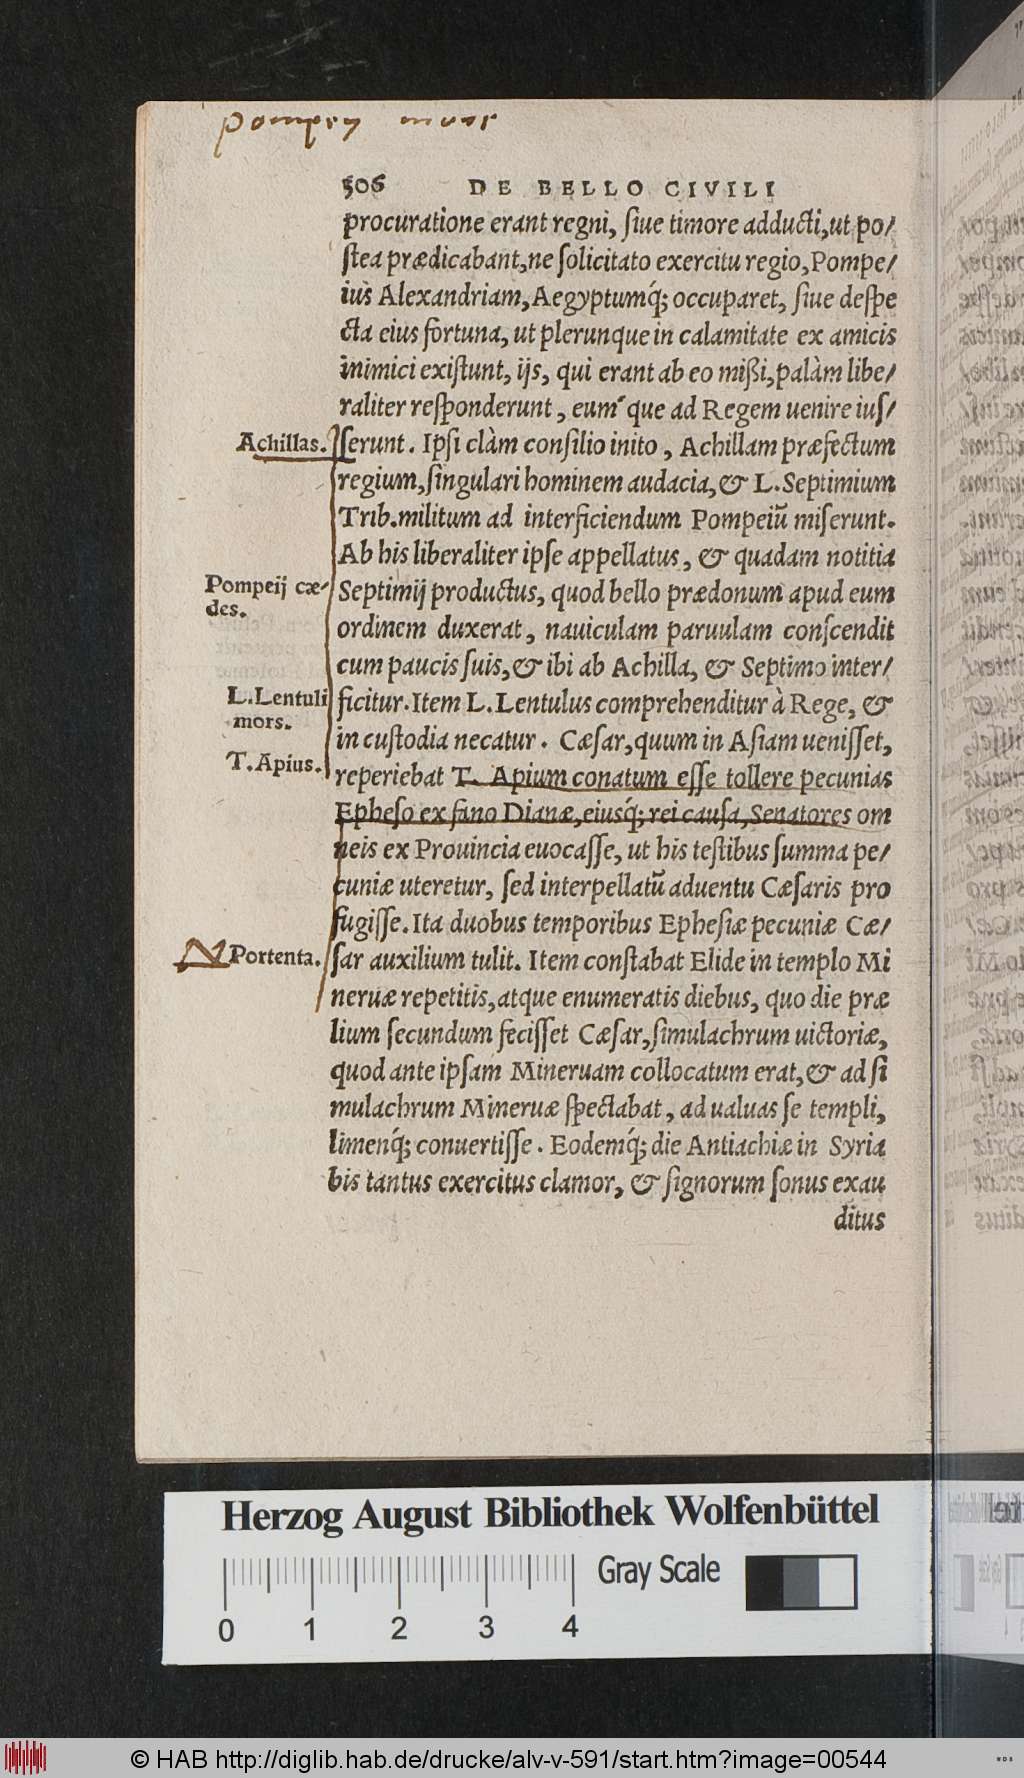 Pompeij mors
506 DE BELLO CIVILI
procuratione erant regni, siue timore adducti,ut po/
stea prædicabant,ne solicitato exercitu regio,Pompe/
ius Alexandriam,Aegyptumq́; occuparet, siue despe
cta eius fortuna, ut plerunque in calamitate ex amicis
inimici existunt, ijs, qui erant ab eo mißi,palàm libe/
raliter responderunt, eum'que ad Regem uenire ius/
Achillas. serunt. Ipsi clàm consilio inito, Achillam præfectum
regium,singulari hominem audacia,& L.Septimium
Trib.militum ad interficiendum Pompeiū miserunt.
Ab his liberaliter ipse appellatus, & quadam notitia
Pompeij cæ/ Septimij productus, quod bello prædonum apud eum
des. ordinem duxerat, nauiculam paruulam conscendit
cum paucis suis,& ibi ab Achilla, & Septimo inter/
L.Lentuli ficitur.Item L.Lentulus comprehenditur à Rege, &
mors. in custodia necatur. Cæsar,quum in Asiam uenisset,
T.Apius. reperiebat T. Apium conatum esse tollere pecunias
Epheso ex fano Dianæ,eiusq́; rei causa,Senatores om
neis ex Prouincia euocasse, ut his testibus summa pe/
cuniæ uteretur, sed interpellatū aduentu Cæsaris pro
fugisse.Ita duobus temporibus Ephesiæ pecuniæ Cæ/
Portenta. sar auxilium tulit. Item constabat Elide in templo Mi
neruæ repetitis,atque enumeratis diebus, quo die præ
lium secundum fecisset Cæsar,simulachrum uictoriæ,
quod ante ipsam Mineruam collocatum erat,& ad si
mulachrum Mineruæ spectabat, ad ualuas se templi,
limenq́; conuertisse. Eodemq́; die Antiachiæ in Syria
bis tantus exercitus clamor, & signorum sonus exau
ditus
Herzog August Bibliothek Wolfenbüttel
Gray Scale
0 1 2 3 4
© HAB http://diglib.hab.de/drucke/alv-v-591/start.htm?image=00544